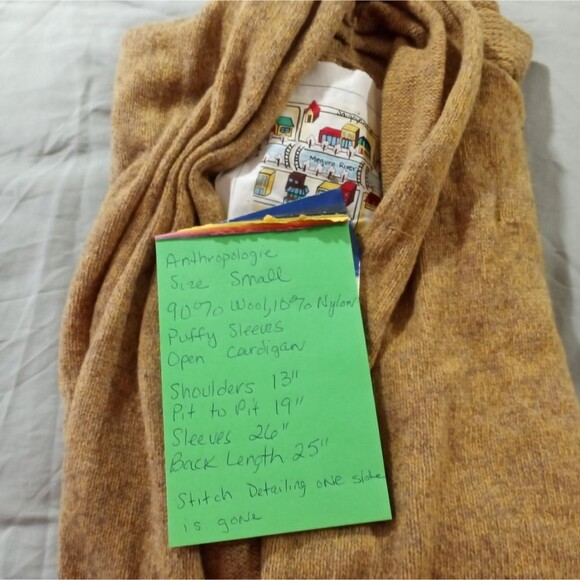 Meguro River
Anthropologie
Size Small
90% Wool, 10% Nylon
Puffy Sleeves
Open Cardigan
Shoulders 13"
Pit to Pit 19"
Sleeves 26"
Back Length 25"
Stitch Detailing one side
is gone